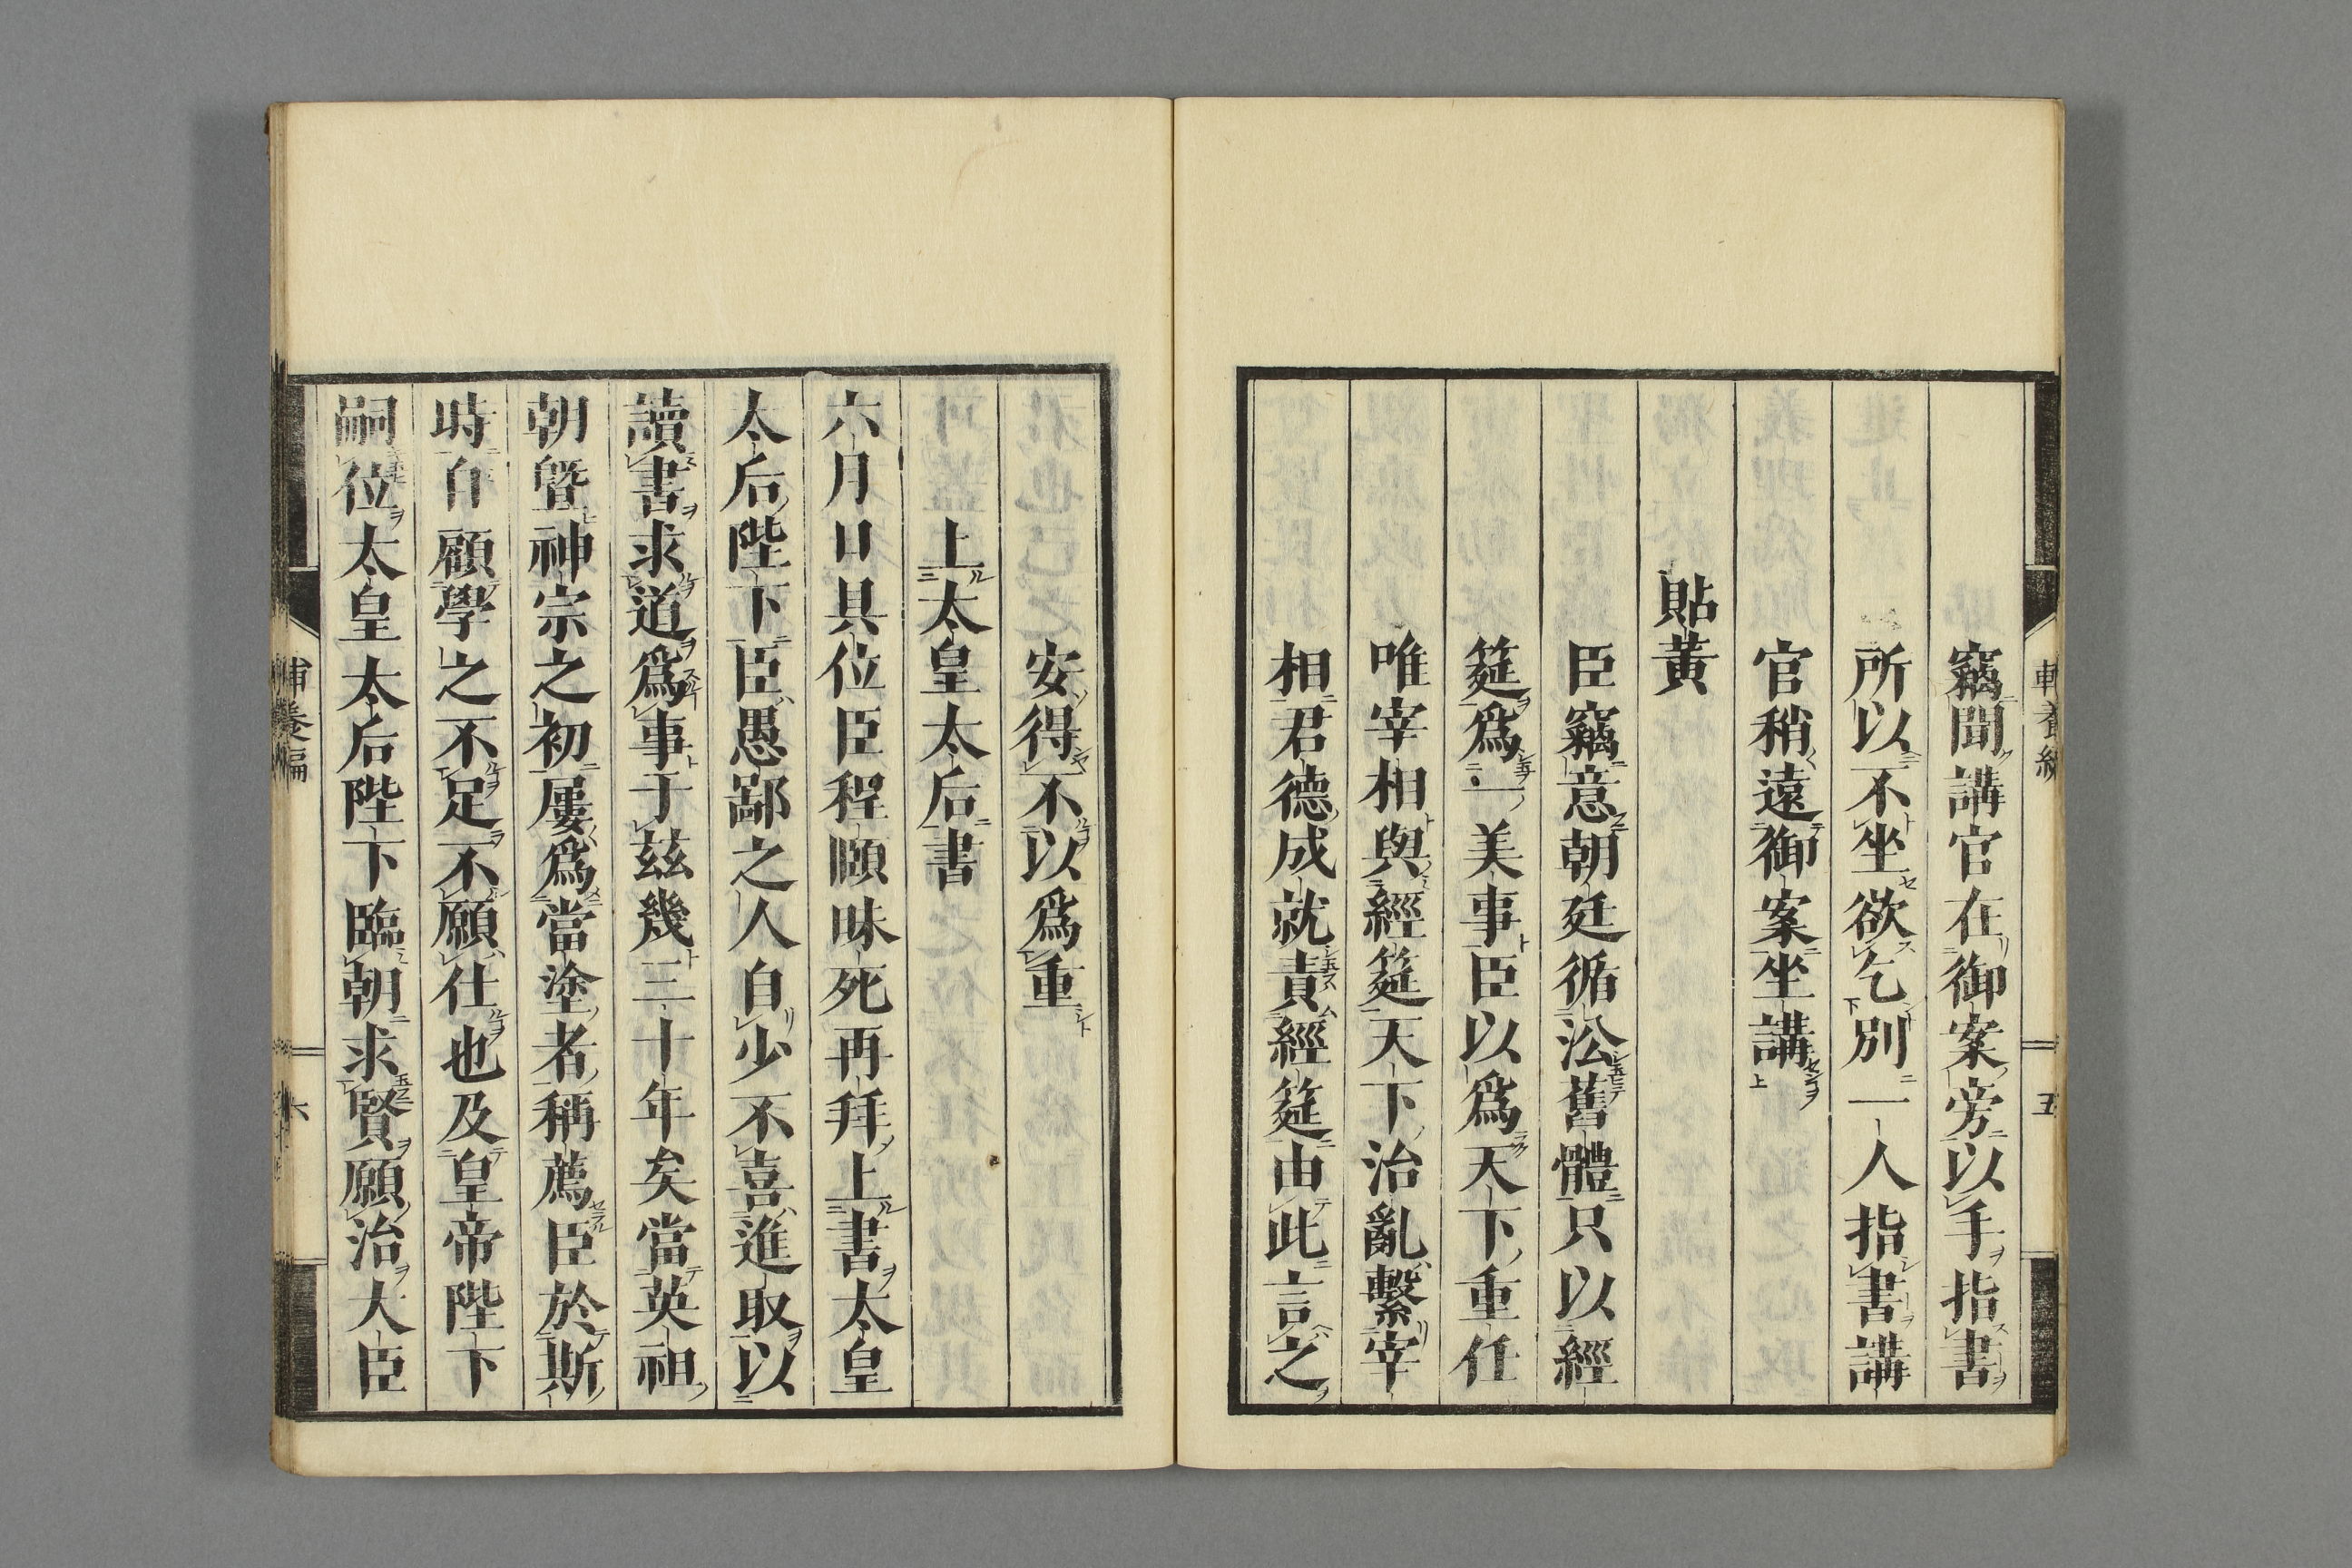 竊聞講官在御案旁以手指書
所以不坐欲乞別一人指書講
官稍遠御案坐講
貼黃
臣竊意朝廷循㳂舊體只以經
筵爲一美事臣以爲天下重任
唯宰相與經筵天下治亂繫宰
相君德成就責經筵由此言之
五
安得不以爲重
上太皇太后書
六月日具位臣程頤昧死再拜上書太皇
太后陛下臣愚鄙之人自少不喜進取以
讀書求道爲事于茲幾三十年矣當英祖
朝曁神宗之初屢爲當塗者稱薦臣於斯
時自顧學之不足不願仕也及皇帝陛下
嗣位太皇太后陛下臨朝求賢願治大臣
六